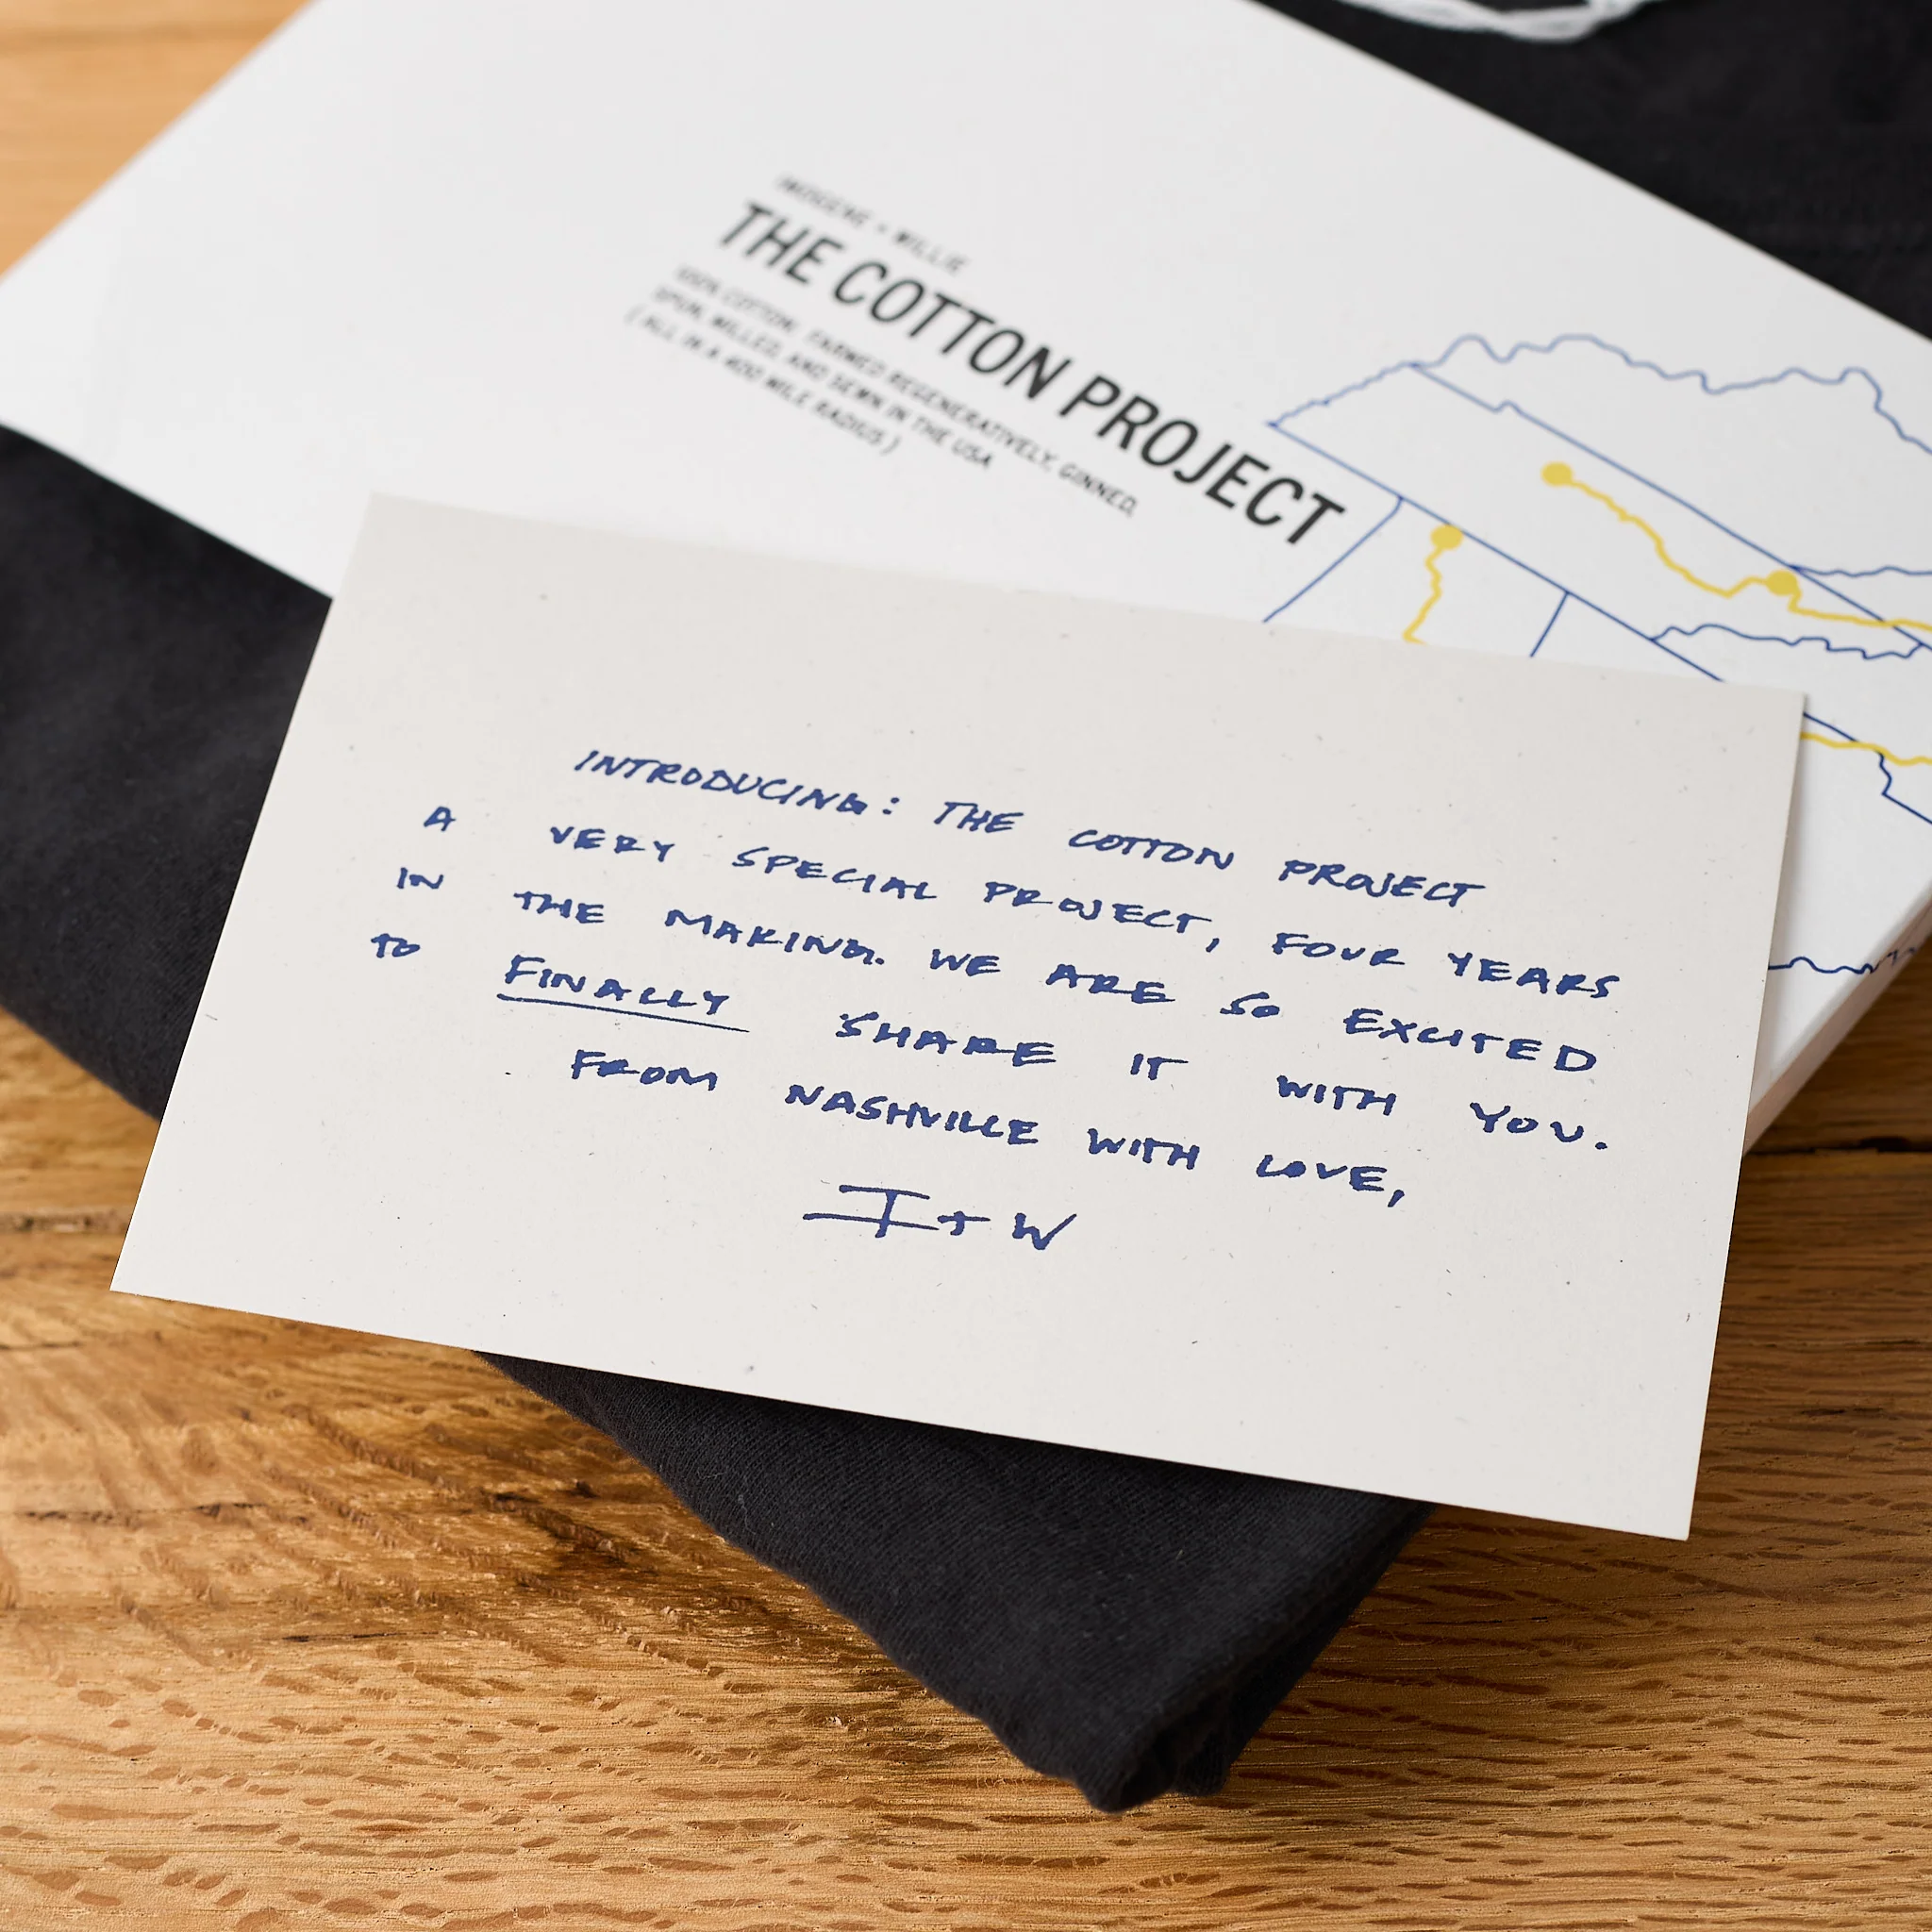 IMOGENE + WILLIE
THE COTTON PROJECT
100% COTTON: FARMED REGENERATIVELY, GINNED,
SPUN, MILLED, AND SEWN IN THE USA
(ALL IN A 400 MILE RADIUS)
INTRODUCING: THE COTTON PROJECT
A VERY SPECIAL PROJECT, FOUR YEARS
IN THE MAKING. WE ARE SO EXCITED
TO FINALLY SHARE IT WITH YOU.
FROM NASHVILLE WITH LOVE,
I + W